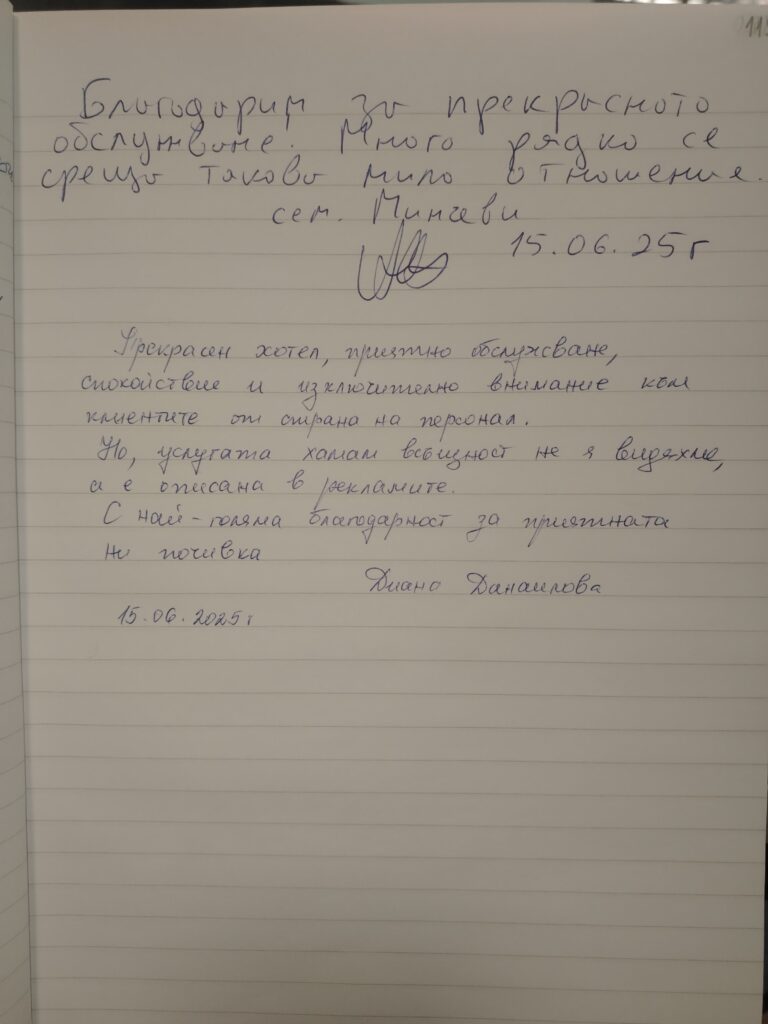 Благодарим за прекрасното
обслужване. Много рядко се
среща такова мило отношение.
сем. Минчеви
15.06.25г
Прекрасен хотел, приятно обслужване,
спокойствие и изключително внимание към
клиентите от страна на персонал.
Но, услугата хамам всъщност не я видяхме,
а е описана в рекламите.
С най-голяма благодарност за приятната
ни почивка
Диана Данаилова
15.06.2025г